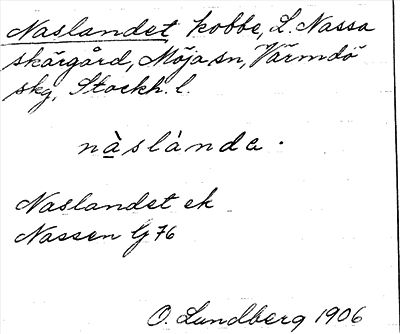 Naslandet, kobbe, L. Nassa
skärgård, Möja sn, Värmdö
skg, Stockh. l.
nàslànda.
Naslandet ek
Nassen G 76
O. Lundberg 1906